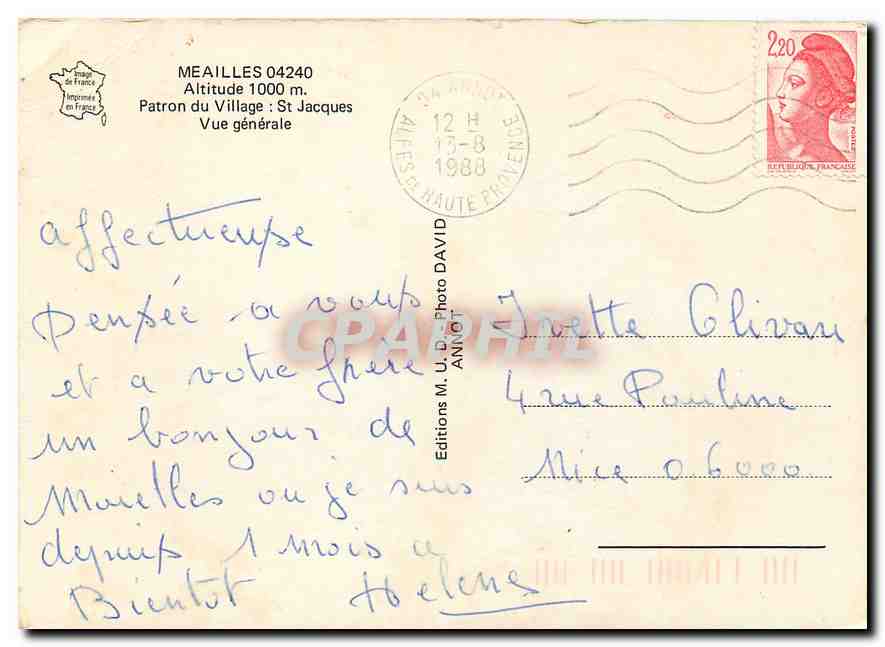 Image
de France
Imprimée
en France
MEAILLES 04240
Altitude 1000 m.
Patron du Village : St Jacques
Vue générale
04 ANNOT
12 H
13-8
1988
ALPES DE HAUTE PROVENCE
2,20
POSTES
REPUBLIQUE FRANÇAISE
affectueuse
pensée a vous
et a votre frère
un bonjour de
Meailles ou je suis
depuis 1 mois a
Bientot Helene
Editions M. U. D. - Photo DAVID
ANNOT
CPAPHIL
Yvette Olivari
4 rue Pauline
Nice 06000